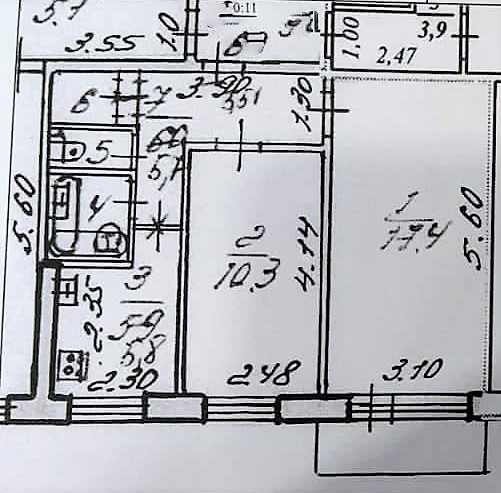 0:11
3.55
1.0
6
1,00
3,9
2,47
6
7
3.90
5,1
1.30
5
4
5.60
2
10.3
4.14
1
17.4
5.60
3
5,9
5,8
2.35
2.30
2.48
3.10